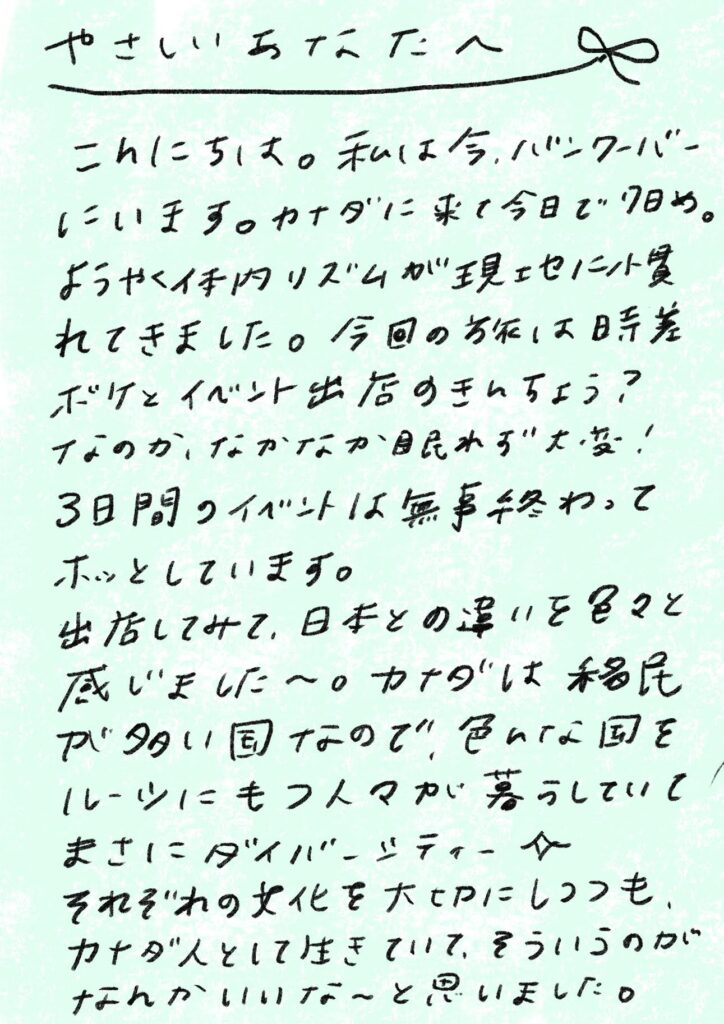 やさしいあなたへ
こんにちは。私は今、バンクーバー
にいます。カナダに来て今日で7日め。
ようやく体内リズムが現地に慣
れてきました。今回の旅は時差
ボケとイベント出店のきんちょう?
なのか、なかなか眠れず大変!
3日間のイベントは無事終わって
ホッとしています。
出店してみて、日本との違いを色々と
感じました〜。カナダは移民
が多い国なので、色んな国を
ルーツにもつ人々が暮らしていて
まさにダイバーシティー✧
それぞれの文化を大切にしつつも、
カナダ人として生きていて、そういうのが
なんかいいな〜と思いました。